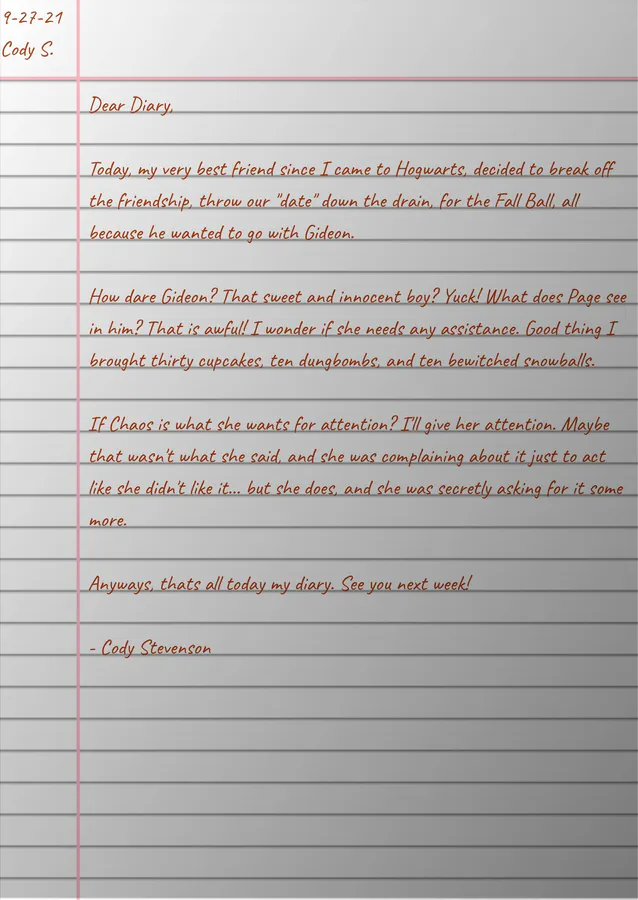 9-27-21
Cody S.
Dear Diary,
Today, my very best friend since I came to Hogwarts, decided to break off
the friendship, throw our "date" down the drain, for the Fall Ball, all
because he wanted to go with Gideon.
How dare Gideon? That sweet and innocent boy? Yuck! What does Page see
in him? That is awful! I wonder if she needs any assistance. Good thing I
brought thirty cupcakes, ten dungbombs, and ten bewitched snowballs.
If Chaos is what she wants for attention? I'll give her attention. Maybe
that wasn't what she said, and she was complaining about it just to act
like she didn't like it... but she does, and she was secretly asking for it some
more.
Anyways, thats all today my diary. See you next week!
- Cody Stevenson